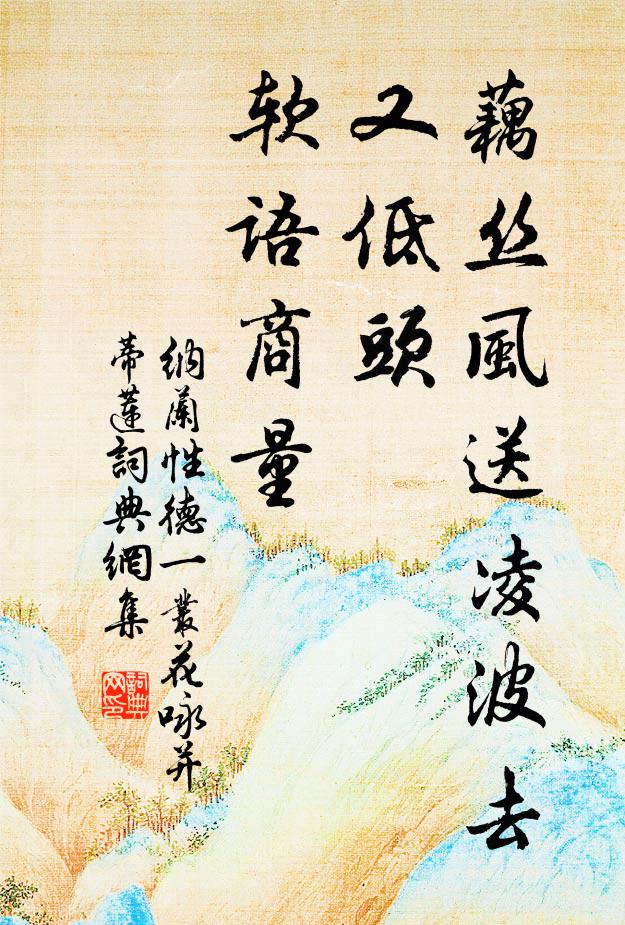 藕丝風送凌波去
又低頭
软語商量
納蘭性德一叢花咏并
蒂蓮詞典網集
詞典
网印